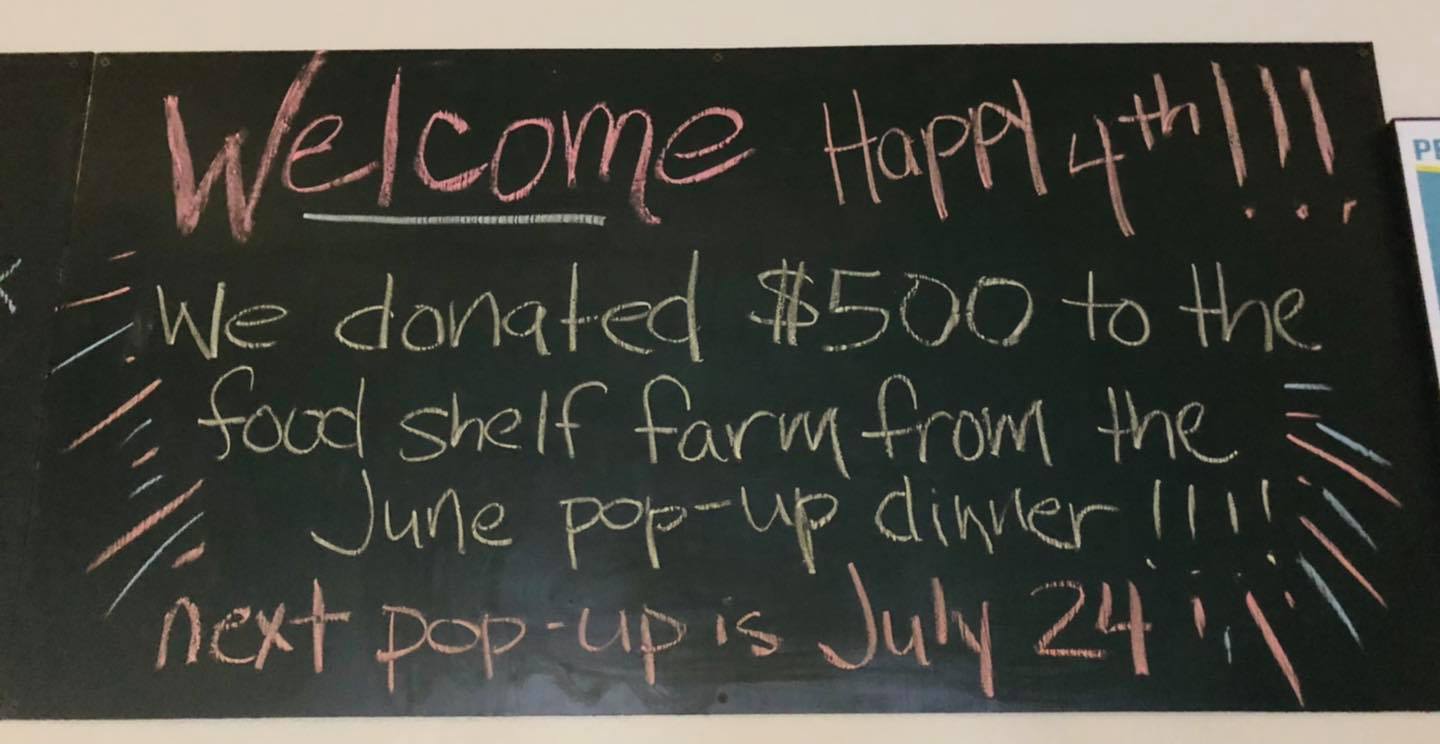 Welcome Happy 4th!!!
We donated $500 to the
food shelf farm from the
June pop-up dinner!!!!
next pop-up is July 24